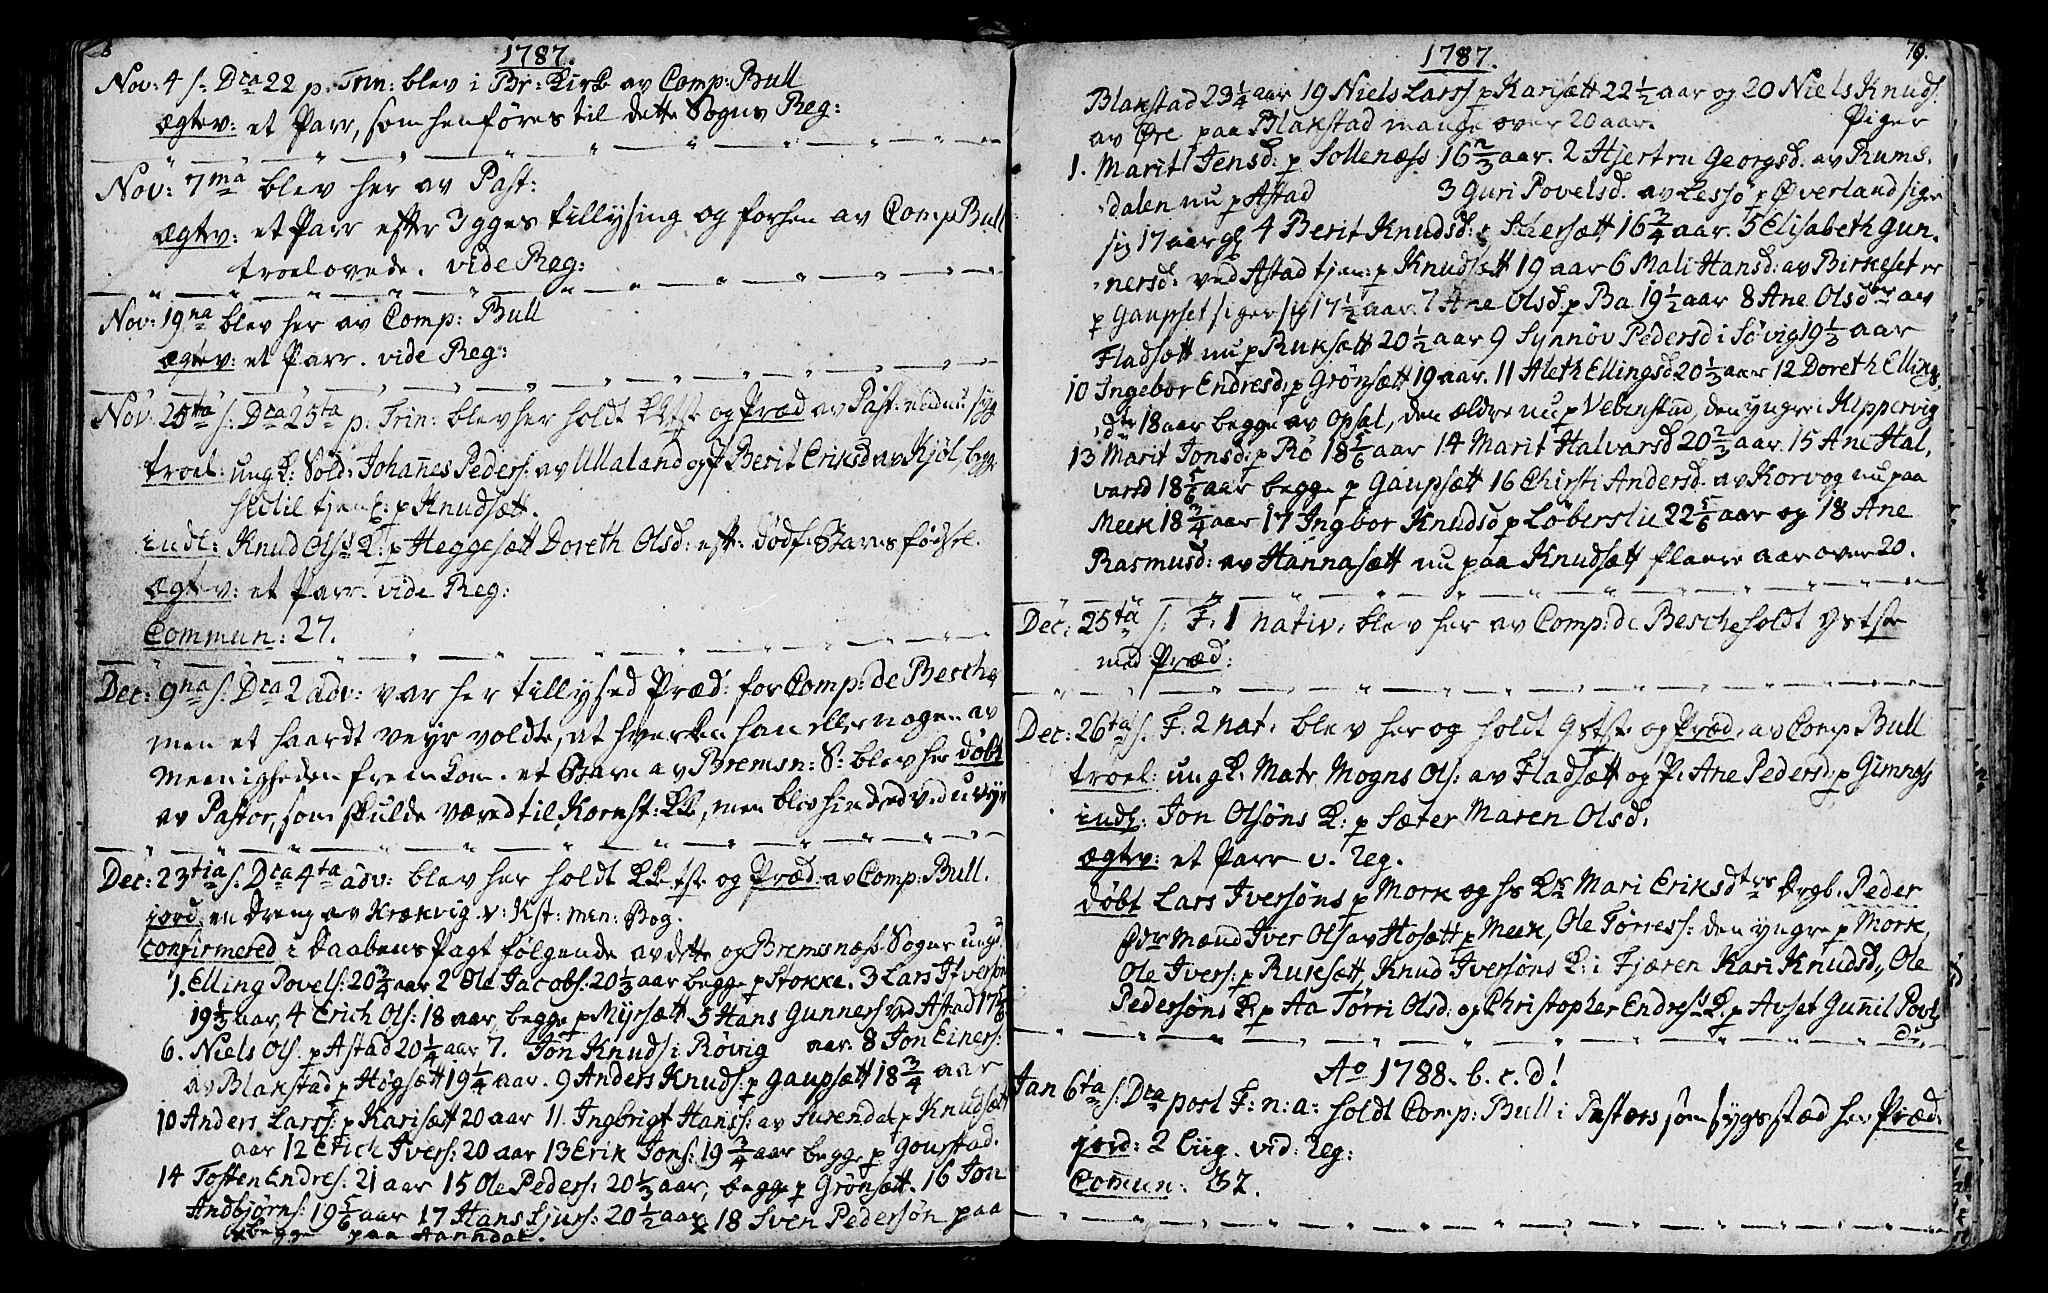 1787.
Nov: 4 s: Dca 22 p. Trin: blev i Br: Kirk av Comp: Bull
ægtev: et Parr, som henføres til dette Sogns Reg:
Nov: 7ma blev her av Past:
ægtev: et Parr efter 3gges tillysing og forhen av Comp Bull
troelovede. vide Reg:
Nov: 19na blev her av Comp: Bull
ægtev: et Parr. vide Reg:
Nov: 25ta s: Dca 25ta p: Trin: blev her holdt og Præd av Past:
troel: ung K: Sold: Johannes Peders: av Ullaland og P Berit Eriksd av Kjøl, begge
til tjen: p Knudsætt.
indl: Knud Ols K: p Heggesætt Doreth Olsd: eft: dødf: Barns fødsel.
ægtev: et Parr. vide Reg:
Commun: 27.
Dec: 9na s: Dca 2 adv: var her tillysed Præd: for Comp: de Besche
men et haardt veyr voldte, at hverken han eller nogen av
Meenigheden frem kom. et Barn av Bremsn: S: blev her døbt
av Pastor, som skulde været til Kornst: KK, men blev hindred ved uveyr
Dec: 23tia s: Dca 4ta adv: blev her holdt og Præd: av Comp: Bull.
jord: en dreng av Krækvig. v: Kst: men: Bog.
confirmered i Daabens Pagt følgende av dette og Bremsnæss Sogns ungd.
1. Elling Povels: 20 3/4 aar 2 Ole Jacobs: 20 1/3 aar begge p Stokke. 3 Lars Ifversøn
19 1/3 aar, 4 Erich Ols: 18 aar, begge p Myrsætt 5 Hans Gunners ved Astad 17 5/6
6. Niels Ols. p Astad 20 1/4 aar 7. Jon Knuds i Røvig aar. 8 Jon Einers:
av Blakstad p Høgsætt 19 1/4 aar. 9 Anders Knuds: p Gaupsætt 18 3/4 aar
10 Anders Larss: p Karisætt 20 aar 11. Ingbrigt Hanss: av Surendal p Knudsætt
aar 12 Erich Ivers: 20 aar 13 Erik Jons: 19 3/4 aar begge p Goustad.
14 Tosten Endres: 21 aar 15 Ole Peders: 20 1/3 aar, begge p Grønsætt. 16 Jon
Andbjørns: 19 5/6 aar 17 Hans Sjurs: 20 1/2 aar x 18 Sven Pedersøn paa
x begge paa Aanndal.
1787. 79.
Blakstad 23 1/4 aar 19 Niels Larss p Karisætt 22 1/2 aar og 20 Niels Knuds.
av Øre paa Blakstad mange over 20 aar. Piger
1. Marit Jensd: p Sollenæss 16 2/3 aar. 2 Hjertru Georgsd: av Rums,
dalen nu p Astad 3 Guri Povelsd. av Lessø p Øverland siger
sig 17 aar 4 Berit Knudsd: p Skersætt 16 3/4 aar. 5 Elisabeth Gun,
nersd: ved Astad tjen: p Knudsætt 19 aar 6 Mali Hansd: av Birkeset er
p Gaupset siger sig 17 1/2 aar. 7 Ane Olsd. p Ba 19 1/2 aar 8 Ane Olsd av
Fladsætt nu p Ruksætt 20 1/2 aar 9 Synnøv Pedersd i Søvig 19 1/3 aar
10 Ingebor Endresd: p Grønsætt 19 aar. 11 Aleth Ellingsd 20 1/3 aar 12 Doreth Ellings,
dtr 18 aar begge av Opsal, den ældre nu p Vebenstad, den yngre i Kippervig
13 Marit Jonsd: p Rø 18 5/6 aar 14 Marit Halvarsd 20 2/3 aar. 15 Ane Hal,
varsd 18 5/6 aar begge p Gaupsætt 16 Chirsti Andersd. av Korvog nu paa
Meek 18 3/4 aar 17 Ingbor Knudsd p Løberslie 22 5/6 aar og 18 Ane
Rasmusd: av Hannasætt nu paa Knudsætt fleere aar over 20.
Dec: 25ta s. F. 1 nativ: blev her av Comp: de Besche holdt
med Præd:
Dec: 26ta s. F. 2 nat: blev her og holdt og Præd. av Comp Bull
troel: ung K. Matr Mogns Ols: av Fladsætt og P: Ane Pedersd: p Gimnæss
indl: Jon Olsøns K: p Sæter Maren Olsd.
ægtev: et Parr v. Reg.
døbt Lars Iversøns p Mork og hs Mari Eriksdtrs Drgb. Peder
Mænd Iver Ols av Hosætt p Meek, Ole Tørress: den yngre p Mork,
Ole Ivers: p Ruksætt, Knud Iversøns K: i Fjæren Kari Knudsd., Ole
Pedersøns K. p Aa Tørri Olsd: og Christopher Endress K. p Avset Gunnil Povls
dr.
Ao 1788. b. c. d!
Jan 6ta s: Dca post F: n: a: holdt Comp: Bull i Pastors som syg stæd her Præd:
jord: 2 Liig. vid: Reg:
Commun: 32.